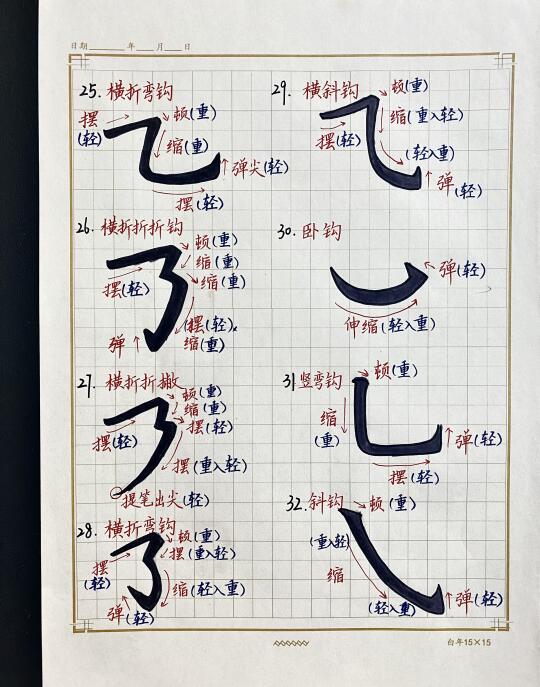 日期 年 月 日
25. 横折弯钩
摆(轻)
顿(重)
缩(重)
弹尖(轻)
摆(轻)
26. 横折折折钩
顿(重)
缩(重)
缩(重)
摆(轻)
摆(轻)
缩(重)
弹
27. 横折折撇
顿(重)
缩(重)
摆(轻)
摆(轻)
摆(重入轻)
提笔出尖(轻)
28. 横折弯钩
顿(重)
摆(重入轻)
摆(轻)
缩(轻入重)
弹(轻)
29. 横斜钩
顿(重)
缩(重入轻)
摆(轻)
(轻入重)
弹(轻)
30. 卧钩
弹(轻)
伸缩(轻入重)
31 竖弯钩
顿(重)
缩(重)
弹(轻)
摆(轻)
32. 斜钩
顿(重)
(重入轻)
缩
(轻入重)
弹(轻)
白年15×15